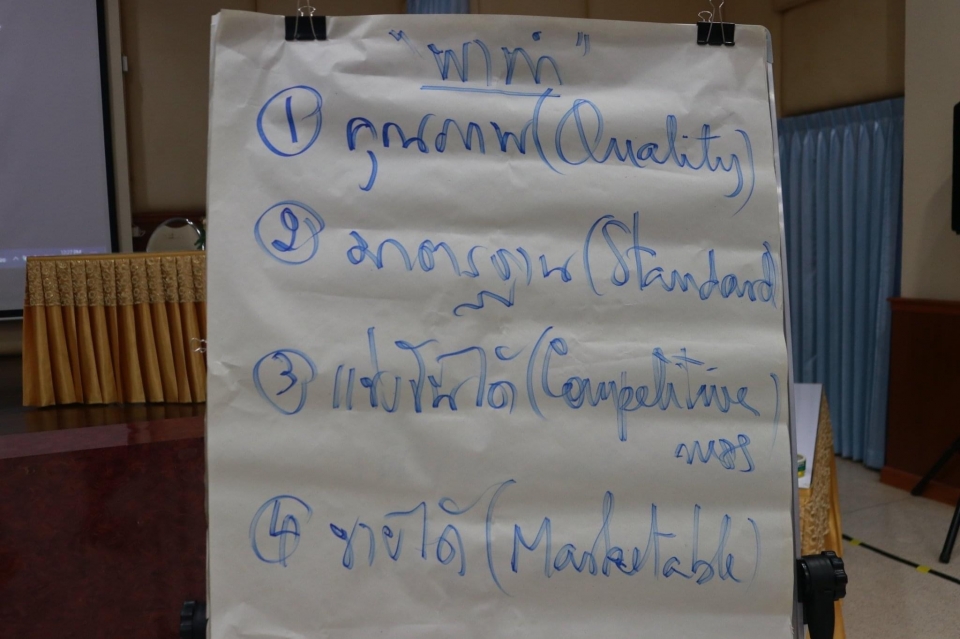 "พาทำ"
① คุณภาพ (Quality)
② มาตรฐาน (Standard)
③ แข่งขันได้ (Competitive)
④ ขายได้ (Marketable)